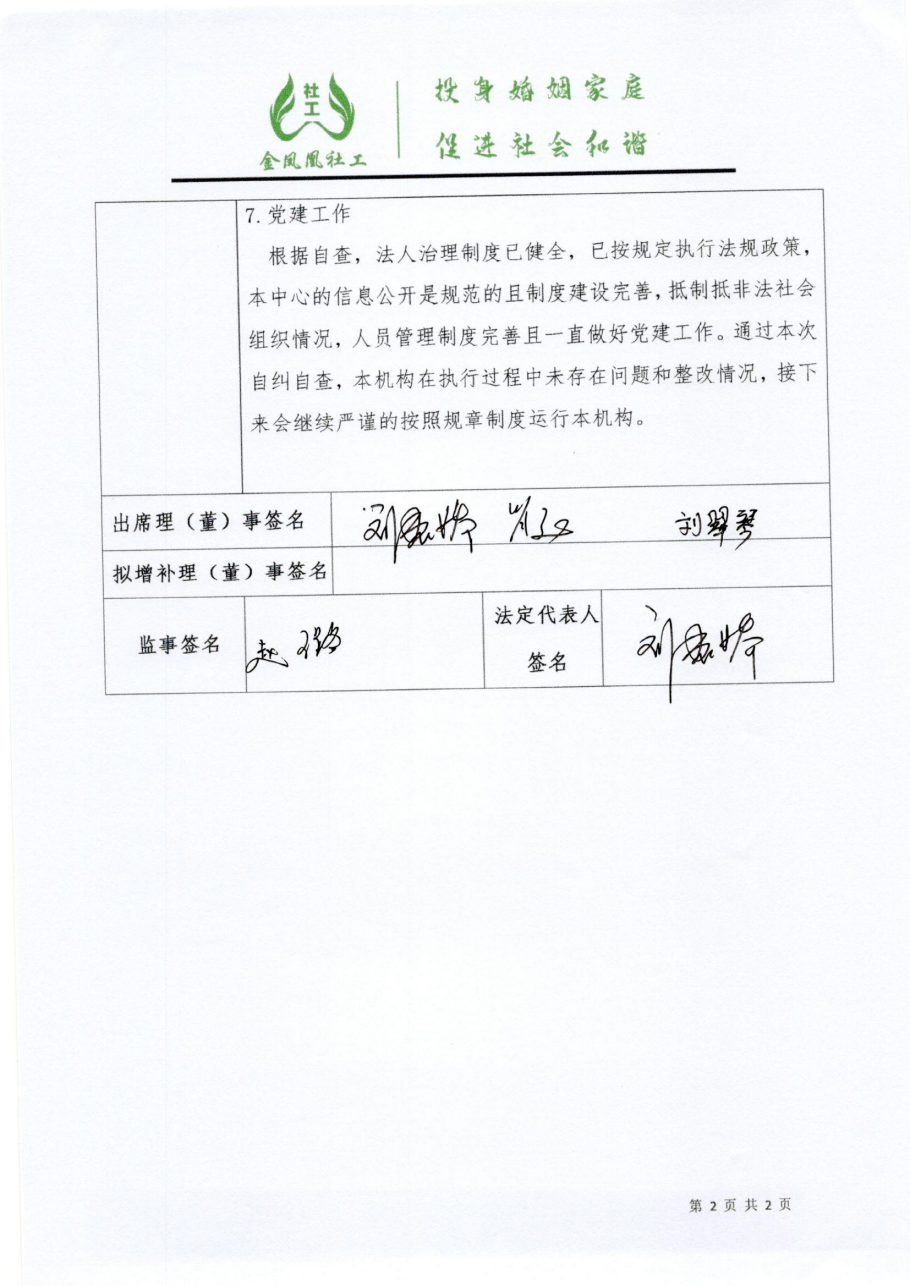 社工
金凤凰社工
投身婚姻家庭
促进社会和谐
7. 党建工作
根据自查，法人治理制度已健全，已按规定执行法规政策，
本中心的信息公开是规范的且制度建设完善，抵制抵非法社会
组织情况，人员管理制度完善且一直做好党建工作。通过本次
自纠自查，本机构在执行过程中未存在问题和整改情况，接下
来会继续严谨的按照规章制度运行本机构。
出席理（董）事签名 刘 刘翠琴
拟增补理（董）事签名
监事签名 赵
法定代表人
签名 刘
第 2 页 共 2 页